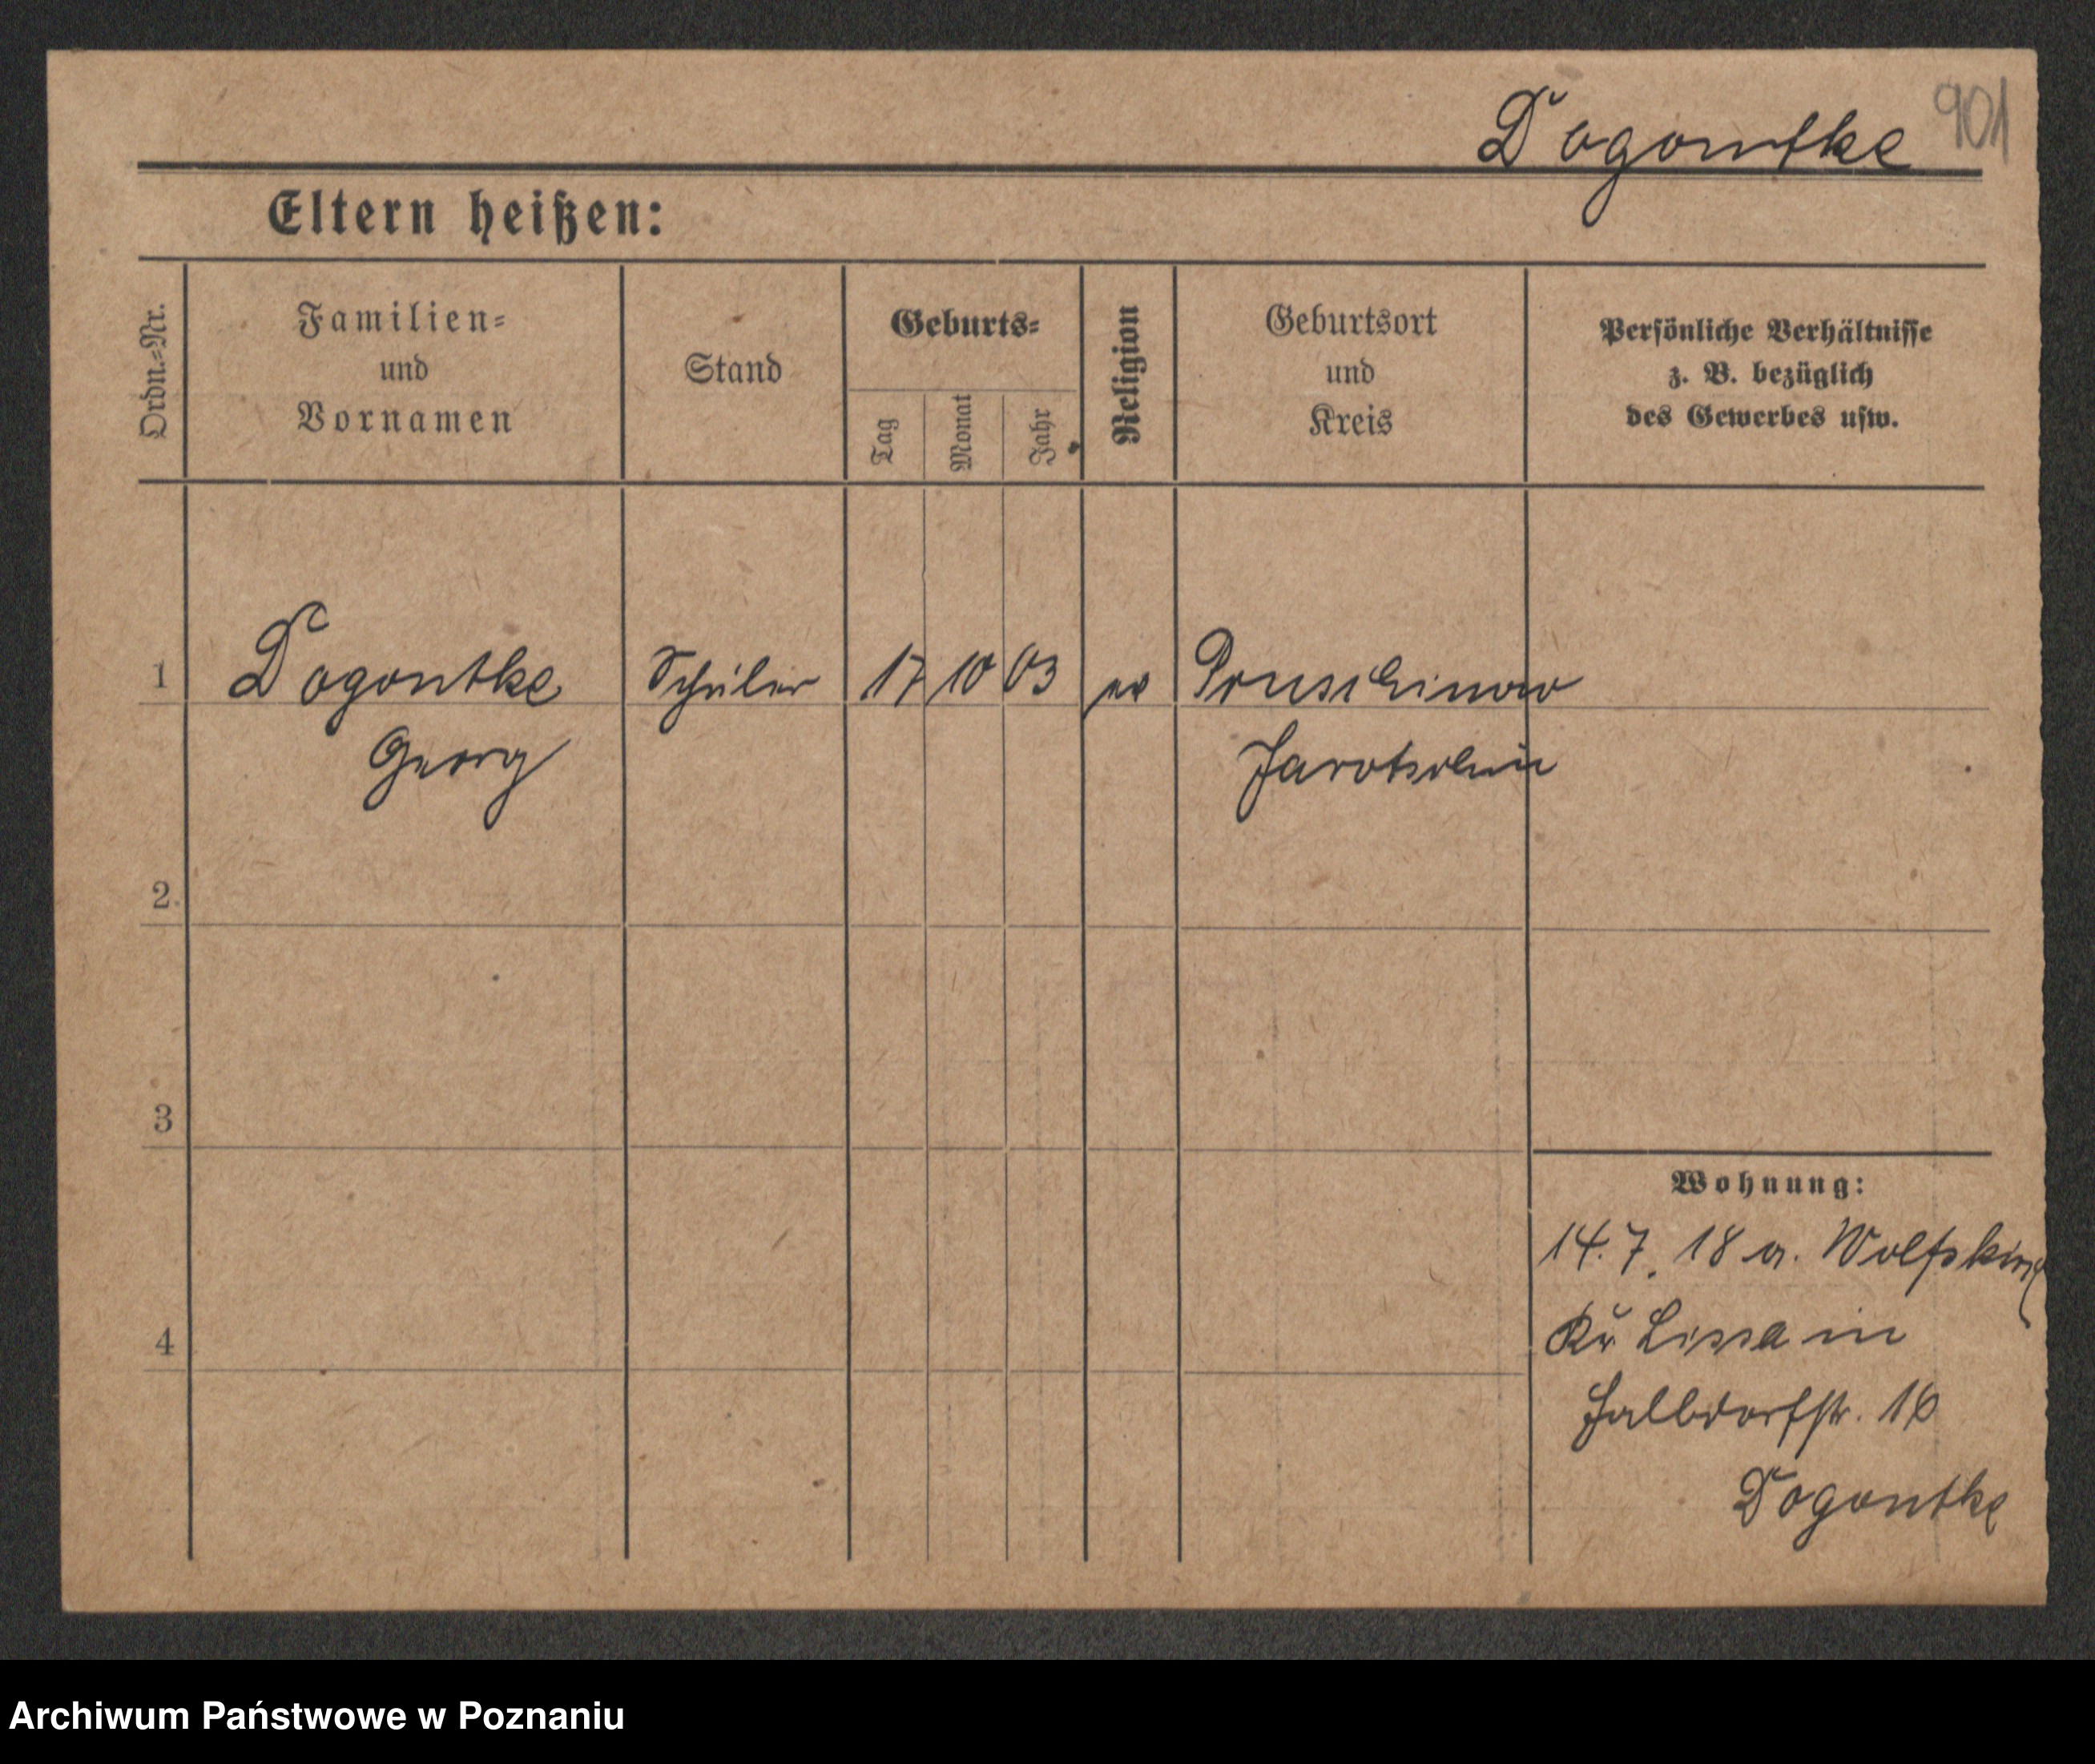 Dogontke 901
Eltern heißen:
Ordn.-Nr.
Familien-
und
Vornamen
Stand
Geburts-
Tag
Monat
Jahr
Religion
Geburtsort
und
Kreis
Persönliche Verhältnisse
z. B. bezüglich
des Gewerbes usw.
1 Dogontke Schüler 17 10 03 ev Pruschinow
Georg Jarotschin
2
3
4
Wohnung:
14. 7. 18 a.
Lissa in
str. 16
Dogontke
Archiwum Państwowe w Poznaniu